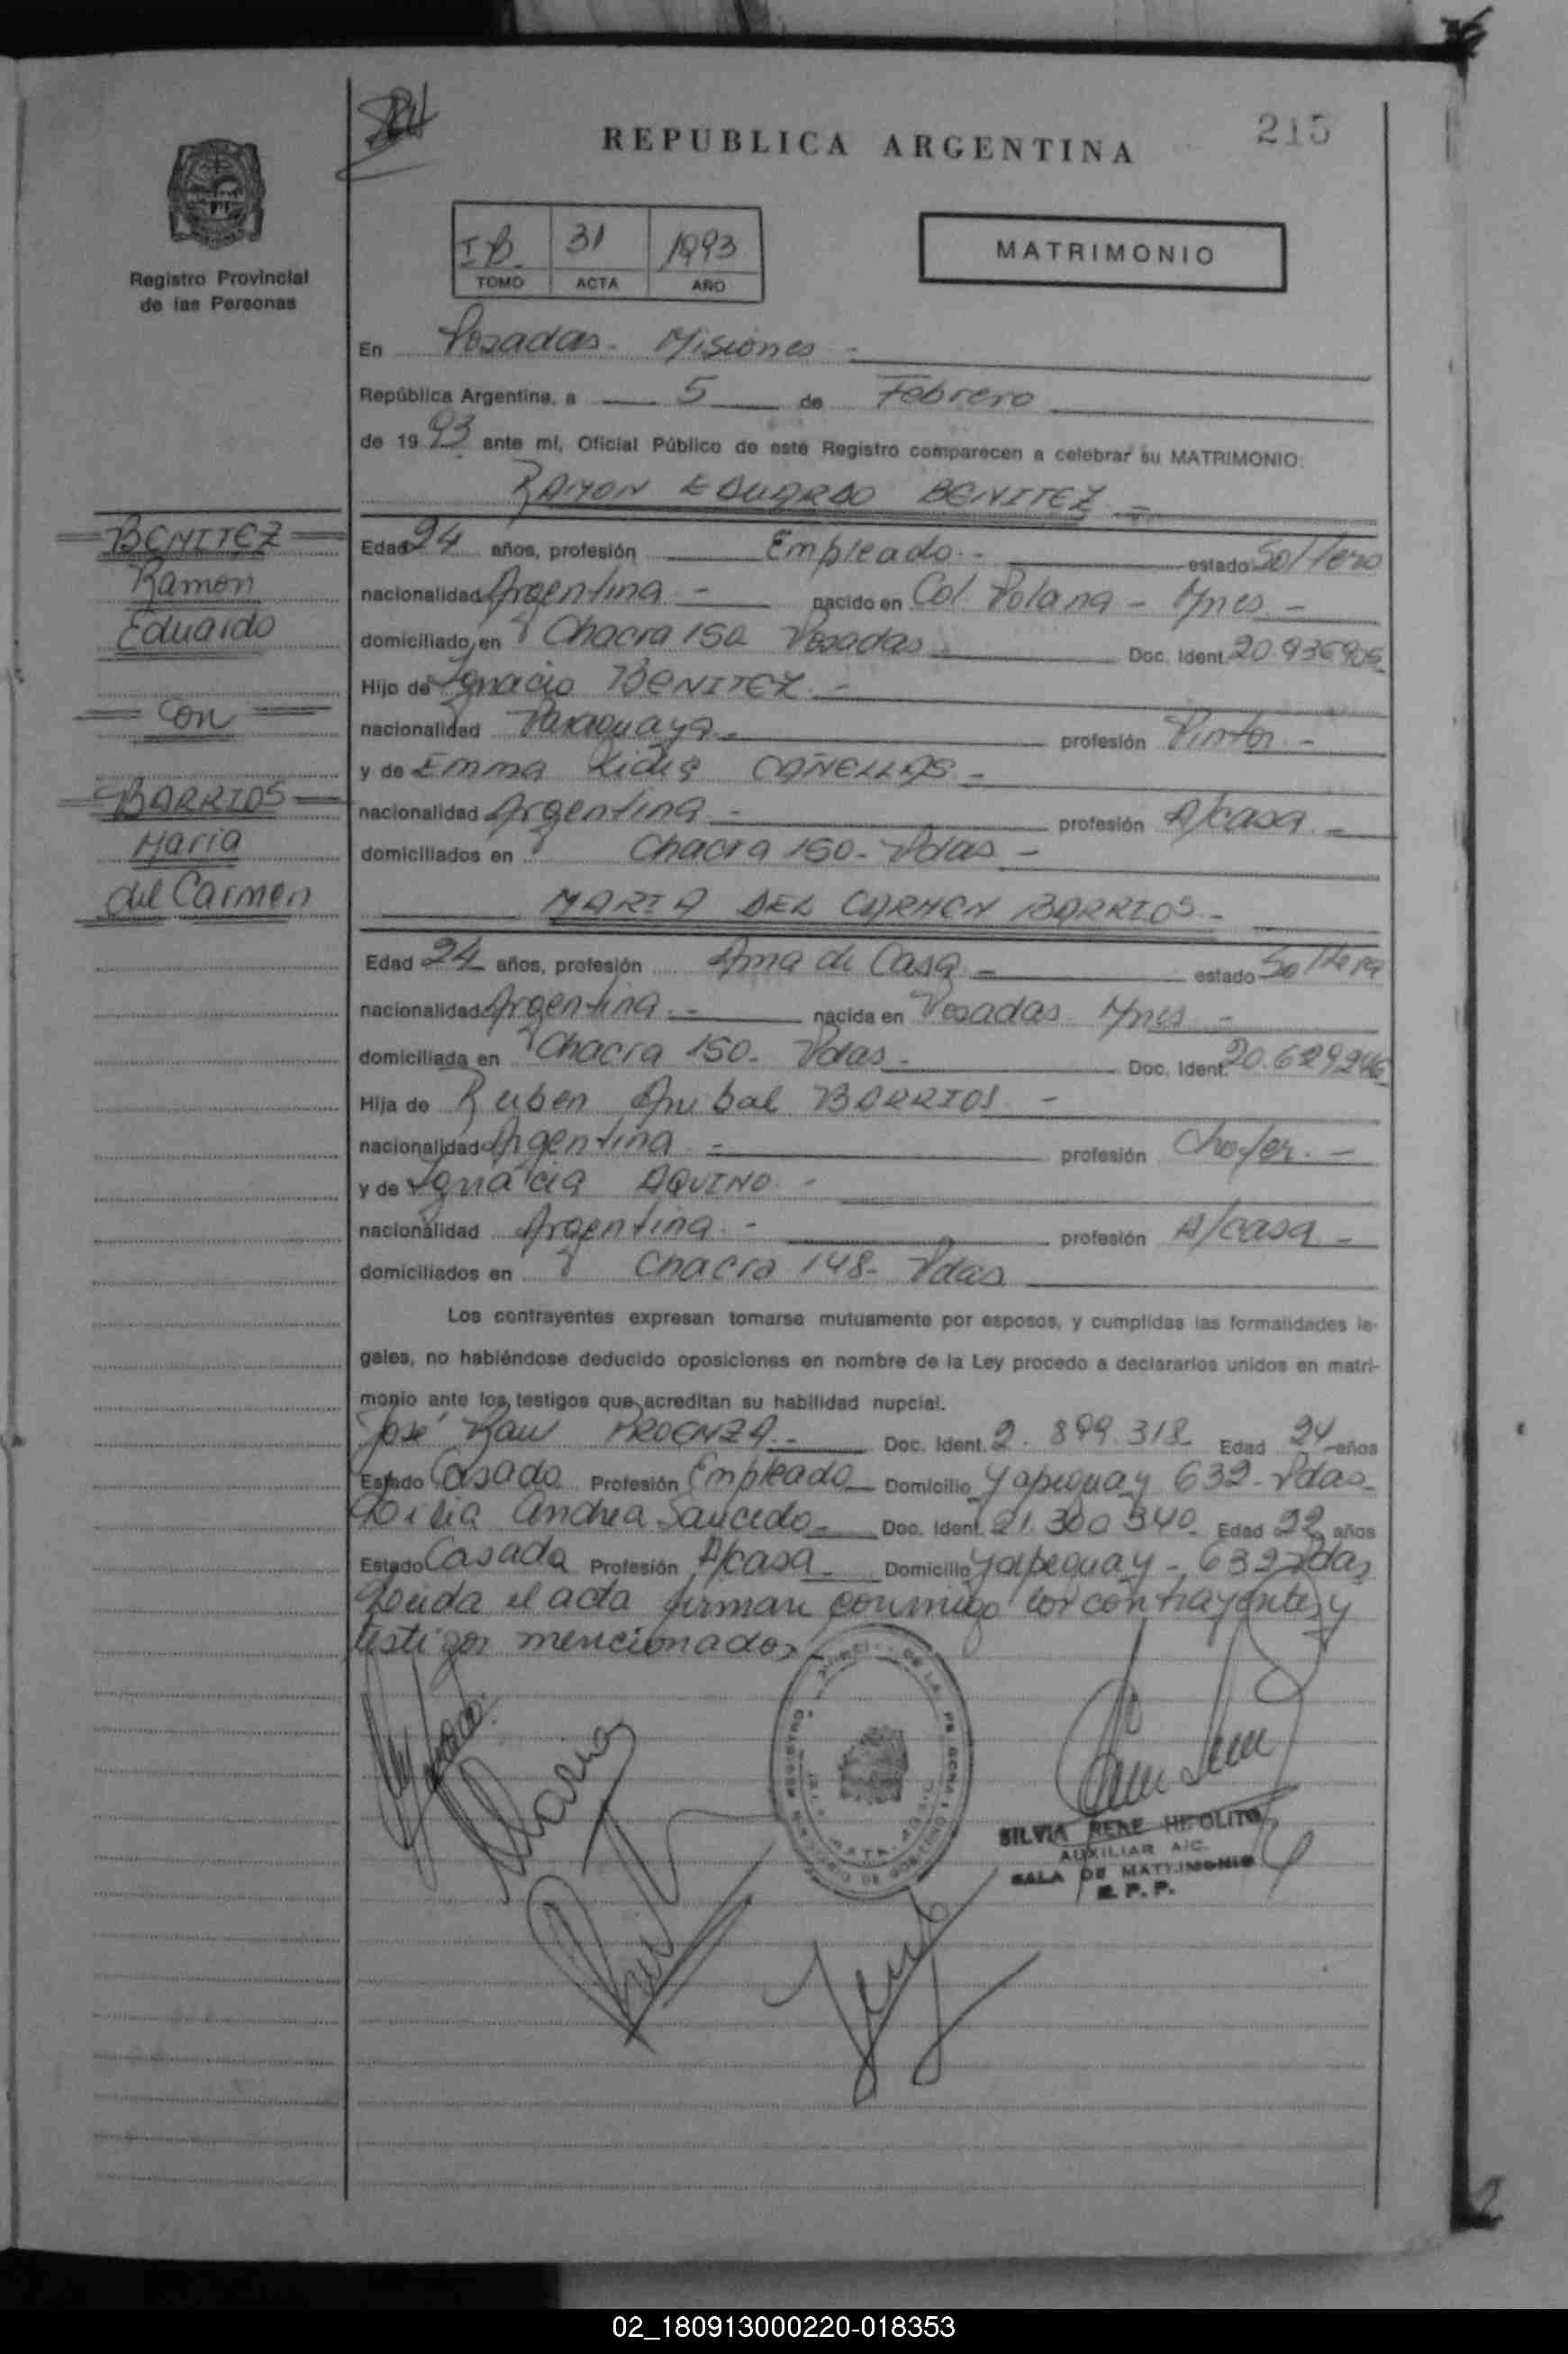 215
REPUBLICA ARGENTINA
Registro Provincial
de las Personas
IB 31 1993
TOMO ACTA AÑO
MATRIMONIO
En Posadas - Misiones -
República Argentina, a 5 de Febrero
de 19 93 ante mí, Oficial Público de este Registro comparecen a celebrar su MATRIMONIO:
RAMON EDUARDO BENITEZ -
BENITEZ
Ramon
Eduardo
Con
BARRIOS
Maria
del Carmen
Edad 24 años, profesión Empleado - estado Soltero
nacionalidad Argentina - nacido en Col. Polana - Mnes -
domiciliado en Chacra 150 Posadas Doc. Ident. 20.936.905
Hijo de Ignacio BENITEZ -
nacionalidad Paraguaya - profesión Pintor -
y de Emma Lidia CAÑELLAS -
nacionalidad Argentina - profesión A/casa -
domiciliados en Chacra 150 - Pdas -
MARIA DEL CARMEN BARRIOS -
Edad 24 años, profesión Ama de Casa - estado Soltera
nacionalidad Argentina - nacida en Posadas Mnes -
domiciliada en Chacra 150 - Pdas - Doc. Ident. 20.629.246
Hija de Ruben Anibal BARRIOS -
nacionalidad Argentina - profesión Chofer -
y de Ignacia AQUINO -
nacionalidad Argentina - profesión A/casa -
domiciliados en Chacra 148 - Pdas
Los contrayentes expresan tomarse mutuamente por esposos, y cumplidas las formalidades le-
gales, no habiéndose deducido oposiciones en nombre de la Ley procedo a declararlos unidos en matri-
monio ante los testigos que acreditan su habilidad nupcial.
José Raul PROENZA - Doc. Ident. 2.899.318 Edad 24 años
Estado Casado Profesión Empleado Domicilio Yapeguay 632 - Pdas -
Andrea Saucedo - Doc. Ident. 21.300.340 Edad 22 años
Estado Casada Profesión A/casa Domicilio Yapeguay - 632 Pdas
Leida el acta firman conmigo los contrayentes y
testigos mencionados -
Maria
SILVIA RENE HIPOLITO
AUXILIAR A/C.
SALA DE MATRIMONIO
R. P. P.
02_180913000220-018353